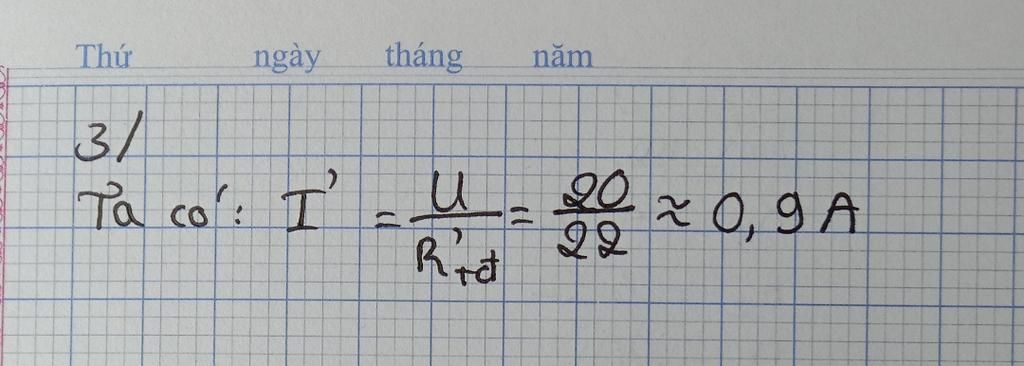 Thứ ngày tháng năm
3/
Ta có: I' = U/R'tđ = 20/22 ≈ 0,9A